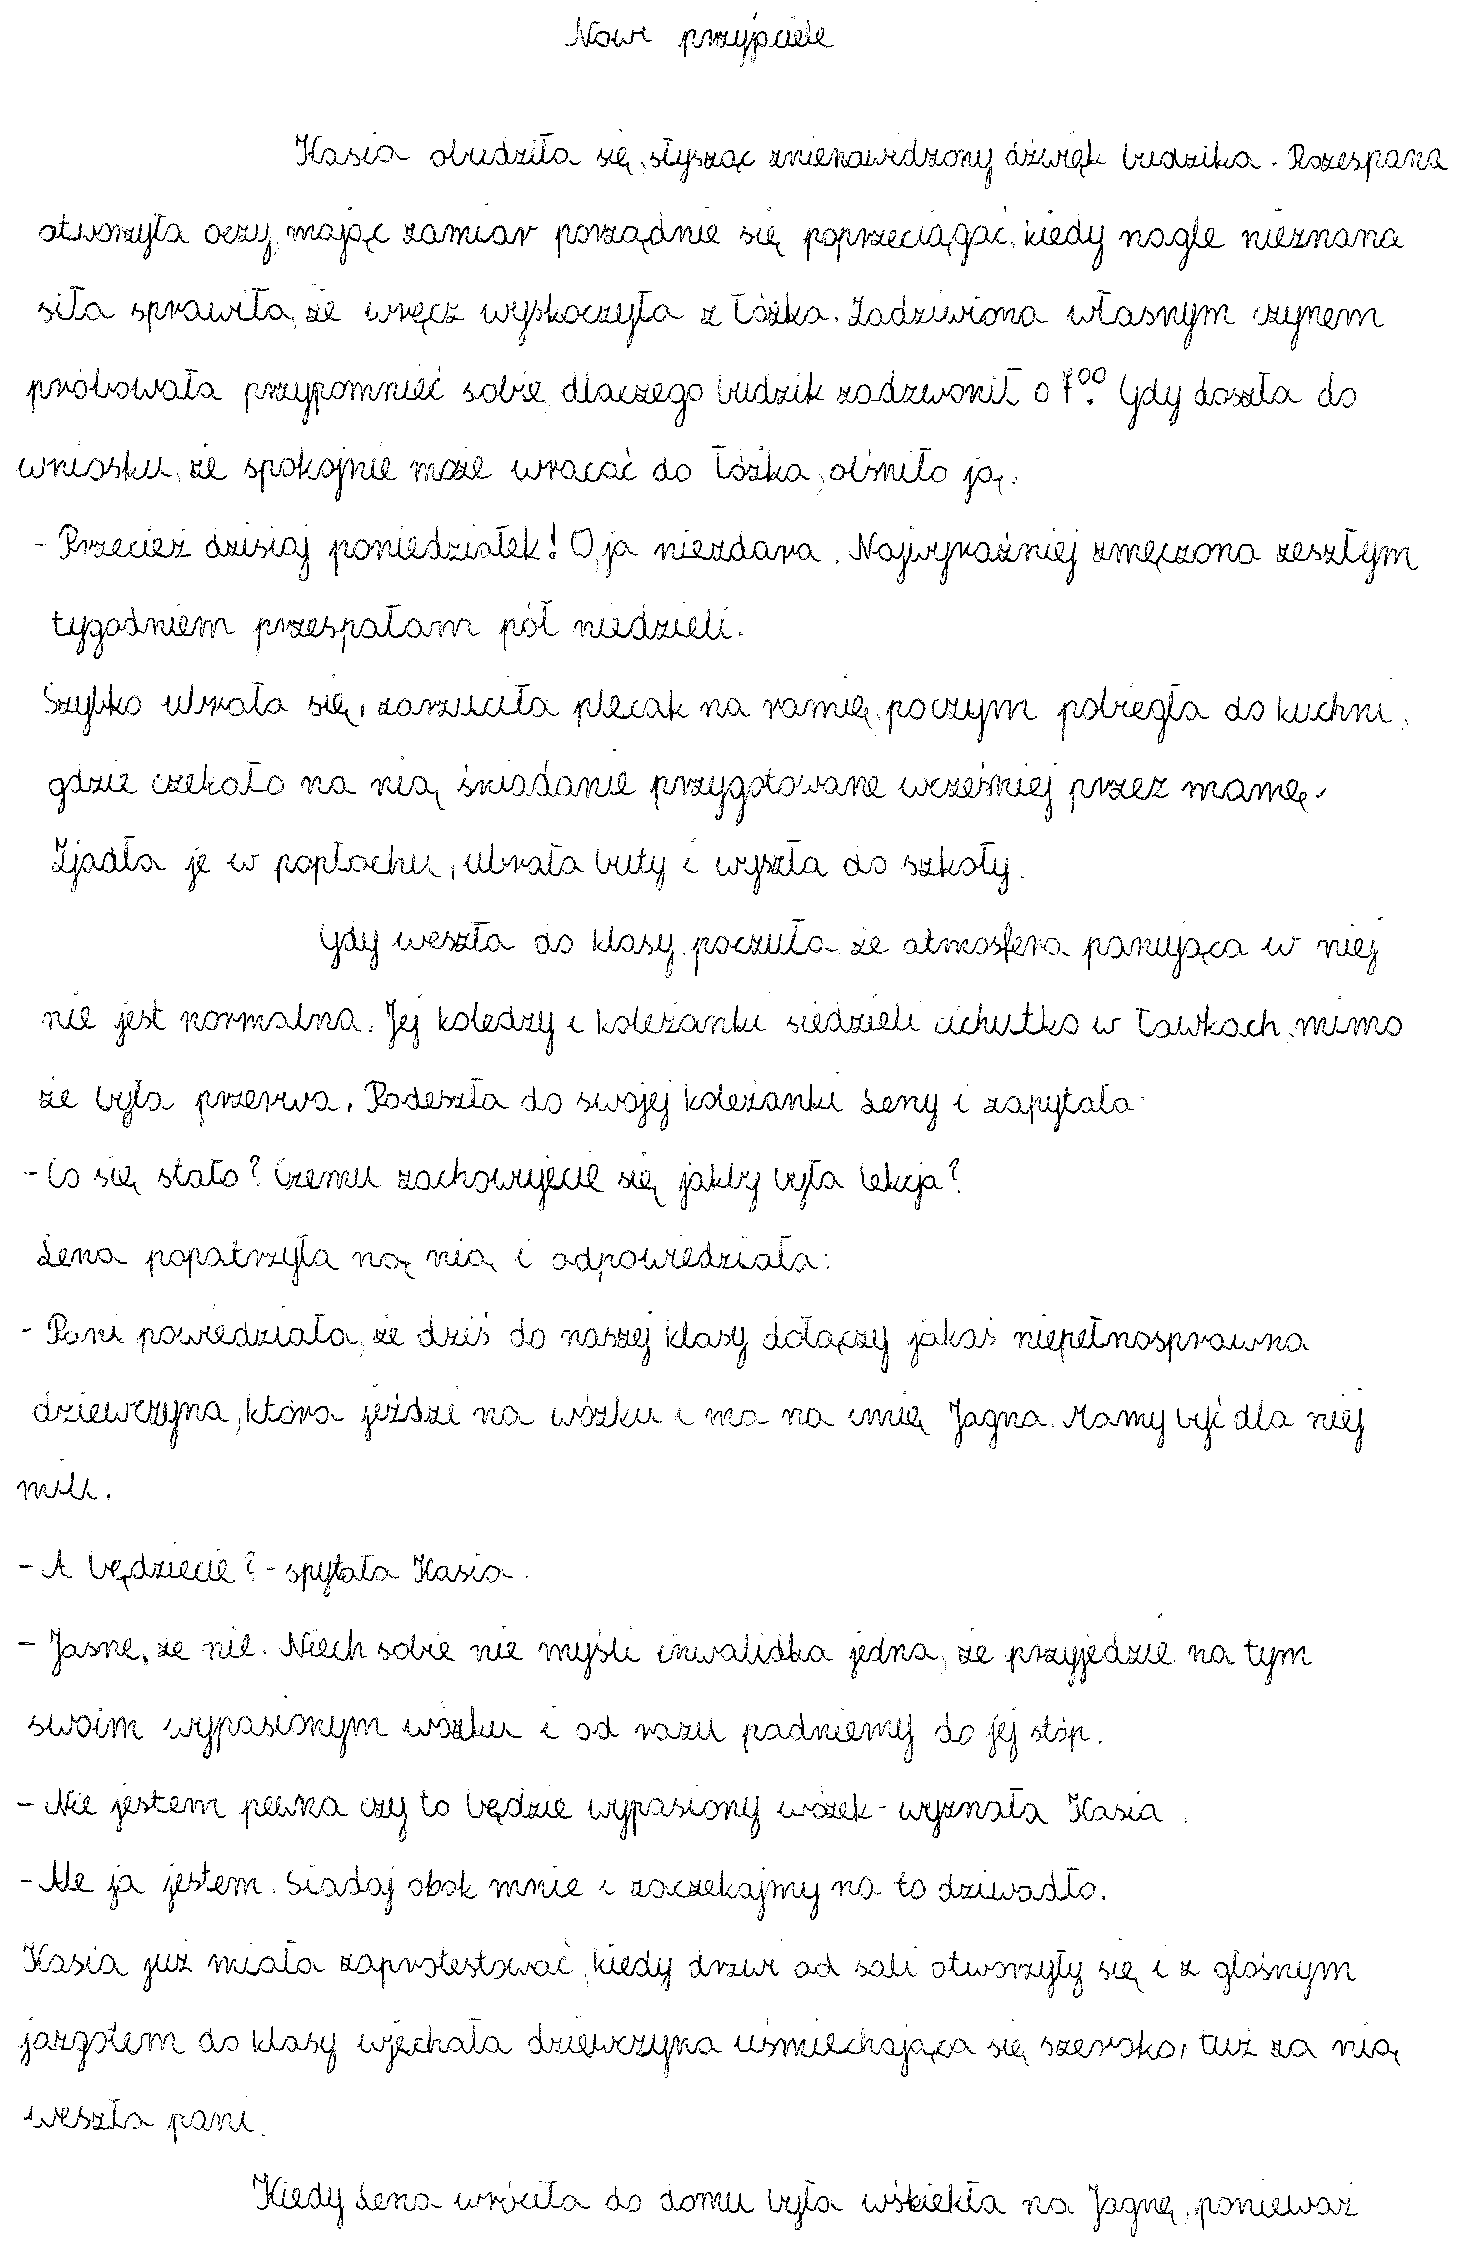 Nowi przyjaciele
Kasia obudziła się, słysząc znienawidzony dźwięk budzika. Rozespana
otworzyła oczy, mając zamiar porządnie się poprzeciągać, kiedy nagle nieznana
siła sprawiła, że wręcz wyskoczyła z łóżka. Zadziwiona własnym czynem
próbowała przypomnieć sobie, dlaczego budzik zadzwonił o 7⁰⁰. Gdy doszła do
wniosku, że spokojnie może wracać do łóżka, olśniło ją.
- Przecież dzisiaj poniedziałek! O, ja niezdara. Najwyraźniej zmęczona zeszłym
tygodniem przespałam pół niedzieli.
Szybko ubrała się, zarzuciła plecak na ramię, poczym pobiegła do kuchni,
gdzie czekało na nią śniadanie przygotowane wcześniej przez mamę.
Zjadła je w popłochu, ubrała buty i wyszła do szkoły.
Gdy weszła do klasy, poczuła że atmosfera panująca w niej
nie jest normalna. Jej koledzy i koleżanki siedzieli cichutko w ławkach, mimo
że była przerwa. Podeszła do swojej koleżanki Leny i zapytała:
- Co się stało? Czemu zachowujecie się jakby była lekcja?
Lena popatrzyła na nią i odpowiedziała:
- Pani powiedziała, że dziś do naszej klasy dołączy jakaś niepełnosprawna
dziewczyna, która jeździ na wózku i ma na imię Jagna. Mamy być dla niej
mili.
- A będziecie? - spytała Kasia.
- Jasne, że nie. Niech sobie nie myśli inwalidka jedna, że przyjedzie na tym
swoim wypasionym wózku i od razu padniemy do jej stóp.
- Nie jestem pewna czy to będzie wypasiony wózek - wyznała Kasia.
- Ale ja jestem. Siadaj obok mnie i zaczekajmy na to dziwadło.
Kasia już miała zaprotestować, kiedy drzwi od sali otworzyły się i z głośnym
jazgotem do klasy wjechała dziewczyna uśmiechająca się szeroko, tuż za nią
weszła pani.
Kiedy Lena wróciła do domu była wściekła na Jagnę, ponieważ